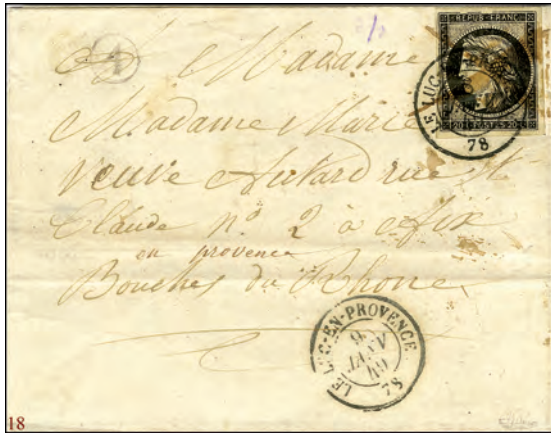 REPUB. FRANC.
20 C POSTES 20 C
LE LUC
78
A
A Madame
Madame Marie
Veuve Autard rue St
Claude n° 2 à Aix
en provence
Bouches du Rhone
LE LUC-EN-PROVENCE
9
JANV
49
78
18